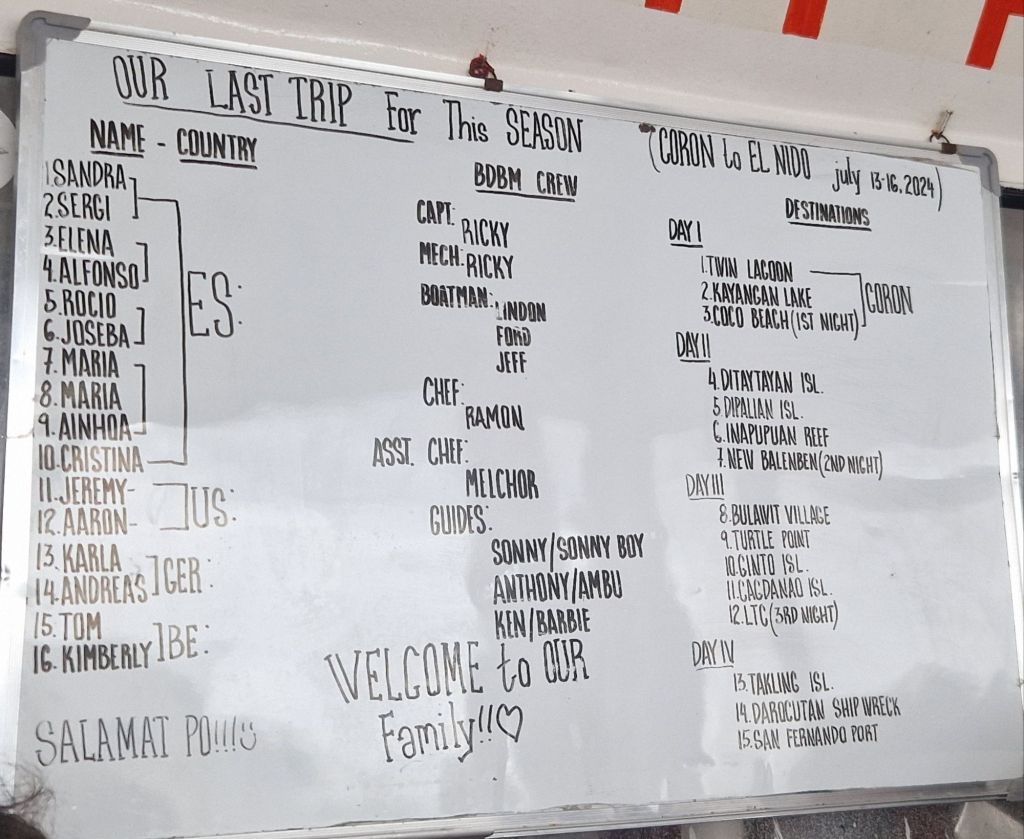 OUR LAST TRIP For This SEASON (CORON to EL NIDO july 13-16, 2024)
NAME - COUNTRY
1.SANDRA
2.SERGI
3.ELENA
4.ALFONSO
5.ROCIO
6.JOSEBA
7.MARIA
8.MARIA
9.AINHOA
10.CRISTINA
ES:
11.JEREMY-
12.AARON-
US:
13.KARLA
14.ANDREAS
GER:
15.TOM
16.KIMBERLY
BE:
SALAMAT PO!!!
BDBM CREW
CAPT:
RICKY
MECH: RICKY
BOATMAN: LINDON
FORD
JEFF
CHEF:
RAMON
ASST. CHEF:
MELCHOR
GUIDES:
SONNY/SONNY BOY
ANTHONY/AMBU
KEN/BARBIE
WELCOME to OUR
Family!!♡
DESTINATIONS
DAY I
1.TWIN LAGOON
2.KAYANGAN LAKE
3.COCO BEACH(1ST NIGHT)
CORON
DAY II
4.DITAYTAYAN ISL.
5.DIPALIAN ISL.
6.INAPUPUAN REEF
7.NEW BALENBEN(2ND NIGHT)
DAY III
8.BULAWIT VILLAGE
9.TURTLE POINT
10.GINTO ISL.
11.CAGDANAO ISL.
12.LTC(3RD NIGHT)
DAY IV
13.TAKLING ISL.
14.DAROCUTAN SHIP WRECK
15.SAN FERNANDO PORT